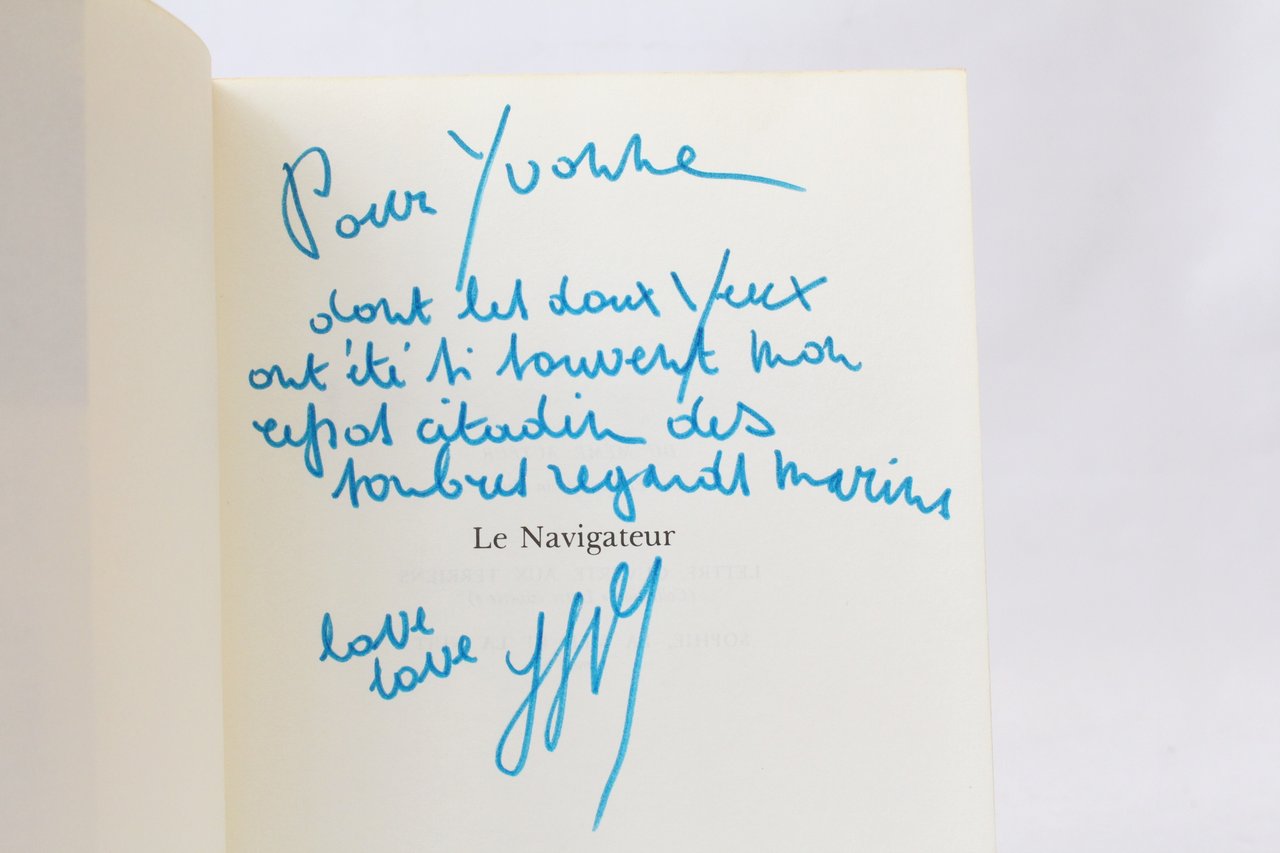 Pour Yvonne
dont les doux Yeux
ont été si souvent mon
repos citadin des
sombres regards marins
Le Navigateur
LETTRE OUVERTE AUX TERRIENS
SOPHIE,
love
love